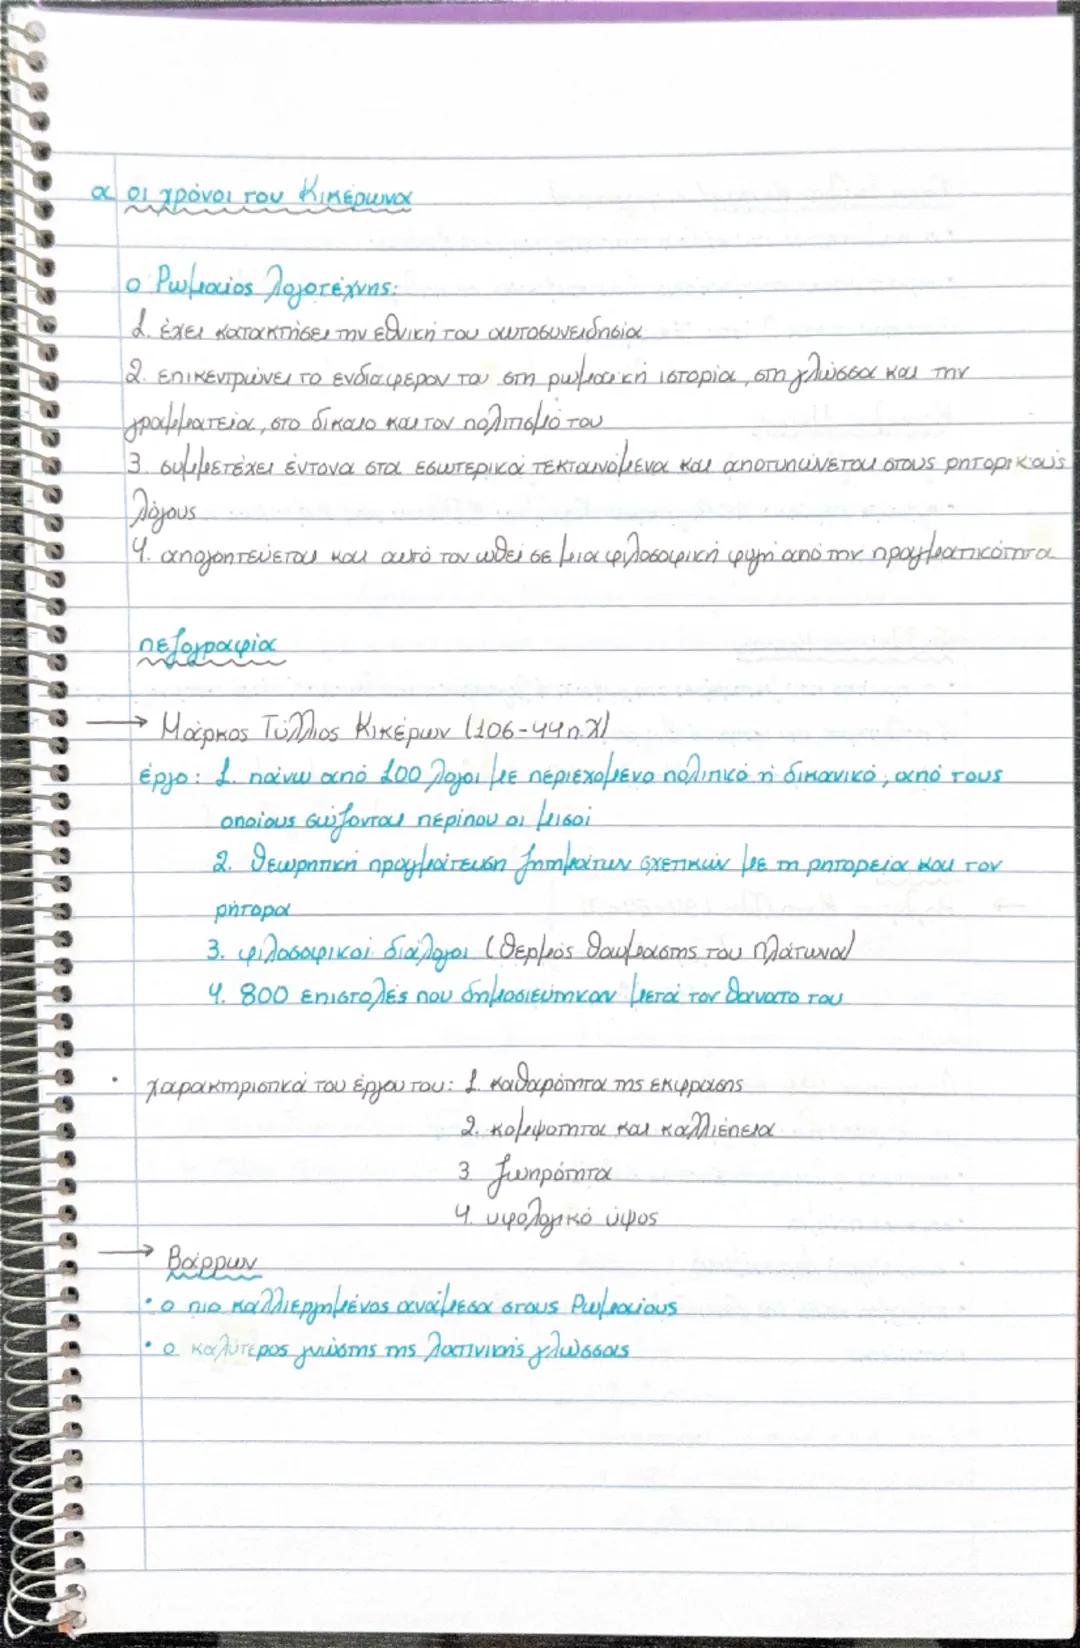 α οι χρόνοι του Κικέρωνα
ο Ρωμαίος λογοτέχνης:
1. έχει κατακτήσει την εθνική του αυτοσυνειδησία
2. επικεντρώνει το ενδιαφέρον του στη ρωμαϊκή ιστορία, στη γλώσσα και την
γραμματεία, στο δίκαιο και τον πολιτισμό του
3. συμμετέχει έντονα στα εσωτερικά τεκταινόμενα και αποτυπώνεται στους ρητορικούς
λόγους
4. απογοητεύεται και αυτό τον ωθεί σε μια φιλοσοφική φυγή από την πραγματικότητα
πεζογραφία
→ Μάρκος Τύλλιος Κικέρων (106-44 π.Χ)
έργο: 1. πάνω από 100 λόγοι με περιεχόμενο πολιτικό ή δικανικό, από τους
οποίους σώζονται περίπου οι μισοί
2. θεωρητική πραγμάτευση ζητημάτων σχετικών με τη ρητορεία και τον
ρήτορα
3. φιλοσοφικοί διάλογοι (θερμός θαυμαστής του Πλάτωνα)
4. 800 επιστολές που δημοσιεύτηκαν μετά τον θάνατο του
• χαρακτηριστικά του έργου του: 1. καθαρότητα της έκφρασης
2. κομψότητα και καλλιέπεια
3 ζωηρότητα
4. υφολογικό ύφος
→ Βάρρων
• ο πιο καλλιεργημένος ανάμεσα στους Ρωμαίους
• ο καλύτερος γνώστης της λατινικής γλώσσας